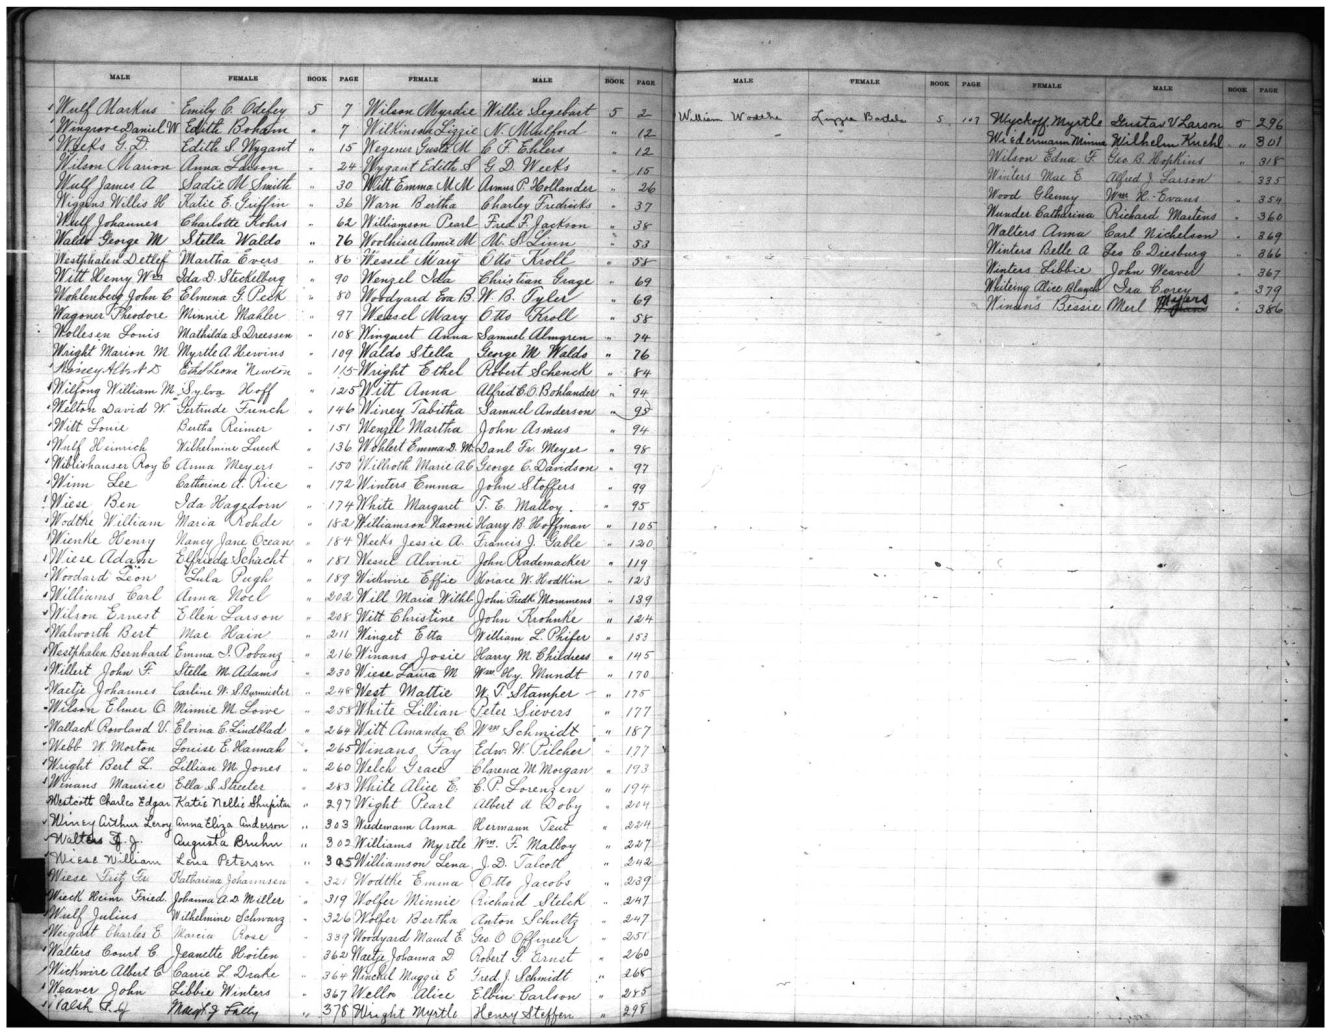 MALE FEMALE BOOK PAGE FEMALE MALE BOOK PAGE
Wulf Markus Emily C. Odefey 5 7 Wilson Myrdie Willie Segebart 5 2
Wingrove Daniel W Edith Bohdm " 7 Wilkinson Lizzie N. Mulford " 12
Weeks G. D. Edith S Wygant " 15 Wegener Gusta M C. F. Ehlers " 12
Wilson Marion Anna Larson " 24 Wygant Edith S G. D. Weeks " 15
Wulf James A Sadie M Smith " 30 Witt Emma M M Asmus P. Hollander " 26
Wiggins Willis H Katie E. Griffin " 36 Warn Bertha Charley Fredricks " 37
Wulf Johannes Charlotte Kohrs " 62 Williamson Pearl Fred F. Jackson " 38
Waldo George M Stella Waldo " 76 Woolhiser Annie M M. S. Linn " 53
Westphalen Detlef Martha Evers " 86 Wessel Mary Otto Kroll " 58
Witt Henry Wm Ida D. Steckelberg " 90 Wenzel Ida Christian Grage " 69
Wohlenberg John C Elmena G. Peck " 80 Woodyard Eva B. W. B. Tyler " 69
Wagoner Theodore Minnie Mahler " 97 Wessel Mary Otto Kroll " 58
Wollesen Louis Mathilda S Dreessen " 108 Winquest Anna Samuel Almgren " 74
Wright Marion M Myrtle A Hewins " 109 Waldo Stella George M Waldo " 76
Albert D Ethel Leona Newson " 115 Wright Ethel Robert Schenck " 84
Wilfong William M. Sylva Hoff " 125 Witt Anna Alfred E. O. Bohlander " 94
Welton David W. Gertrude French " 146 Winey Tabitha Samuel Anderson " 95
Witt Louie Bertha Reimer " 151 Wenzel Martha John Asmus " 94
Wulf Heinrich Wilhelmine Lueck " 136 Wohlert Emma D. M. Danl Fr. Meyer " 98
Roy C Anna Meyers " 150 Willroth Marie A C George C. Davidson " 97
Winn Lee Catherine A. Rice " 172 Winters Emma John Stoffers " 99
Wiese Ben Ida Hagedorn " 174 White Margaret T. E. Malloy " 95
Wodtke William Maria Rohde " 182 Williamson Naomi Harry B. Hoffman " 105
Wienke Henry Nancy Jane Ocean " 184 Weeks Jessie A. Francis J. Gable " 120
Wiese Adam Elfrieda Schacht " 181 Wessel Alwine John Rademacker " 119
Woodard Leon Lula Pugh " 189 Wickwire Effie Horace W. Hodkin " 123
Williams Carl Anna Noel " 202 Will Maria Wilhl. John Fredk Mommens " 139
Wilson Ernest Ellen Larson " 208 Witt Christine John Krohnke " 124
Walworth Bert Mae Hain " 211 Winget Etta William L. Phifer " 153
Westphalen Bernhard Emma I. Pobanz " 216 Winans Josie Harry M. Childress " 145
Willert John F. Stella M. Adams " 230 Wiese Laura M Wm Hy. Mundt " 170
Waetje Johannes Carline W. S. Burmeister " 248 West Mattie W. T. Stamper " 175
Wilson Elmer O. Minnie M. Lowe " 258 White Lillian Peter Sievers " 177
Wallack Rowland V. Elvina C. Lindblad " 264 Witt Amanda C. Wm Schmidt " 187
Webb W. Morton Louise E. Hannah " 265 Winans Fay Edw. W. Pilcher " 177
Wright Bert L. Lillian M. Jones " 260 Welch Grace Clarence M. Morgan " 193
Winans Maurice Ella S. Streeter " 283 White Alice E. C. P. Lorenzen " 194
Westcott Charles Edgar Katie Nellie Shupitar " 297 Wight Pearl Albert A Doby " 204
Winey Arthur Leroy Anna Eliza Anderson " 303 Wiedemann Anna Hermann Teut " 224
Walters J. Augusta Bruhn " 302 Williams Myrtle Wm. F. Malloy " 227
Wiese William Lena Petersen " 305 Williamson Lena J. D. Talcott " 242
Wiese Fritz Fr. Katharina Johannsen " 321 Wodtke Emma Otto Jacobs " 239
Wieck Heinr Fried. Johanna A D Miller " 319 Wolfer Minnie Richard Stelck " 247
Wulf Julius Wilhelmine Schwarz " 326 Wolfer Bertha Anton Schultz " 247
Charles E. Marcia Rose " 339 Woodyard Maud E. Geo. O Officeer " 251
Walters Court C. Jeanette Hoiten " 362 Waetje Johanna D Robert G Ernst " 260
Wickwire Albert C Carrie L. Drake " 364 Winckel Maggie E Fred J. Schmidt " 268
Weaver John Libbie Winters " 367 Wells Alice Elbin Carlson " 285
Walsh Margt J Lally " 378 Wright Myrtle Henry Steffen " 298
MALE FEMALE BOOK PAGE FEMALE MALE BOOK PAGE
William Wodtke Lizzie 5 Wyckoff Myrtle Gustav V Larson 5 296
Wiedermann Minna Wilhelm Kuehl " 301
Wilson Edna F. Geo B. Hopkins " 318
Winters Mae E Alfred J. Larson " 335
Wood Glenny Wm H. Evans " 354
Wunder Catharina Richard Martens " 360
Walters Anna Carl Nichelson " 369
Winters Belle A Leo C Diesburg " 366
Winters Libbie John Weaver " 367
Whiteing Alice Blanch Ira Corey " 379
Winans Bessie Merl Myers " 386